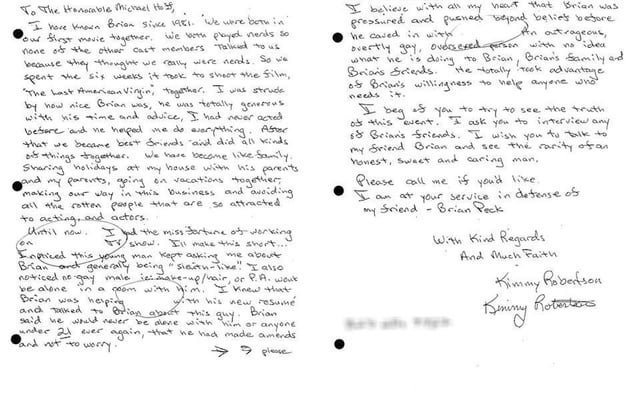 To The Honorable Michael Hoff,
I have known Brian since 1981. We were both in
our first movie together. We both played nerds so
none of the other cast members talked to us
because they thought we really were nerds. So we
spent the six weeks it took to shoot the film,
"The Last American Virgin", together. I was struck
by how nice Brian was, he was totally generous
with his time and advice, I had never acted
before and he helped me do everything. After
that we became best friends and did all kinds
of things together. We have become like family.
Sharing holidays at my house with his parents
and my parents, going on vacations together,
making our way in this business and avoiding
all the rotten people that are so attracted
to acting, and actors.
Until now. I had the miss fortune of working
on TV show. I'll make this short...
I noticed this young man kept asking me about
Brian and generally being "sleuth-like". I also
noticed no gay male make-up/hair, or P.A. wont
be alone in a room with him. I knew that
Brian was helping with his new resumé
and talked to Brian about this guy. Brian
said he would never be alone with him or anyone
under 21 ever again, that he had made amends
and not to worry.
→ please
I believe with all my heart that Brian was
pressured and pushed beyond belief before
he caved in with An outrageous,
overtly gay, oversexed person with no idea
what he is doing to Brian, Brian's family and
Brian's friends. He totally took advantage
of Brian's willingness to help anyone who
needs it.
I beg of you to try to see the truth
of this event. I ask you to interview any
of Brian's friends. I wish you to talk to
my friend Brian and see the rarity of an
honest, sweet and caring man.
Please call me if you'd like.
I am at your service in defense of
my friend - Brian Peck
With Kind Regards
And Much Faith
Kimmy Robertson
Kimmy Robertson